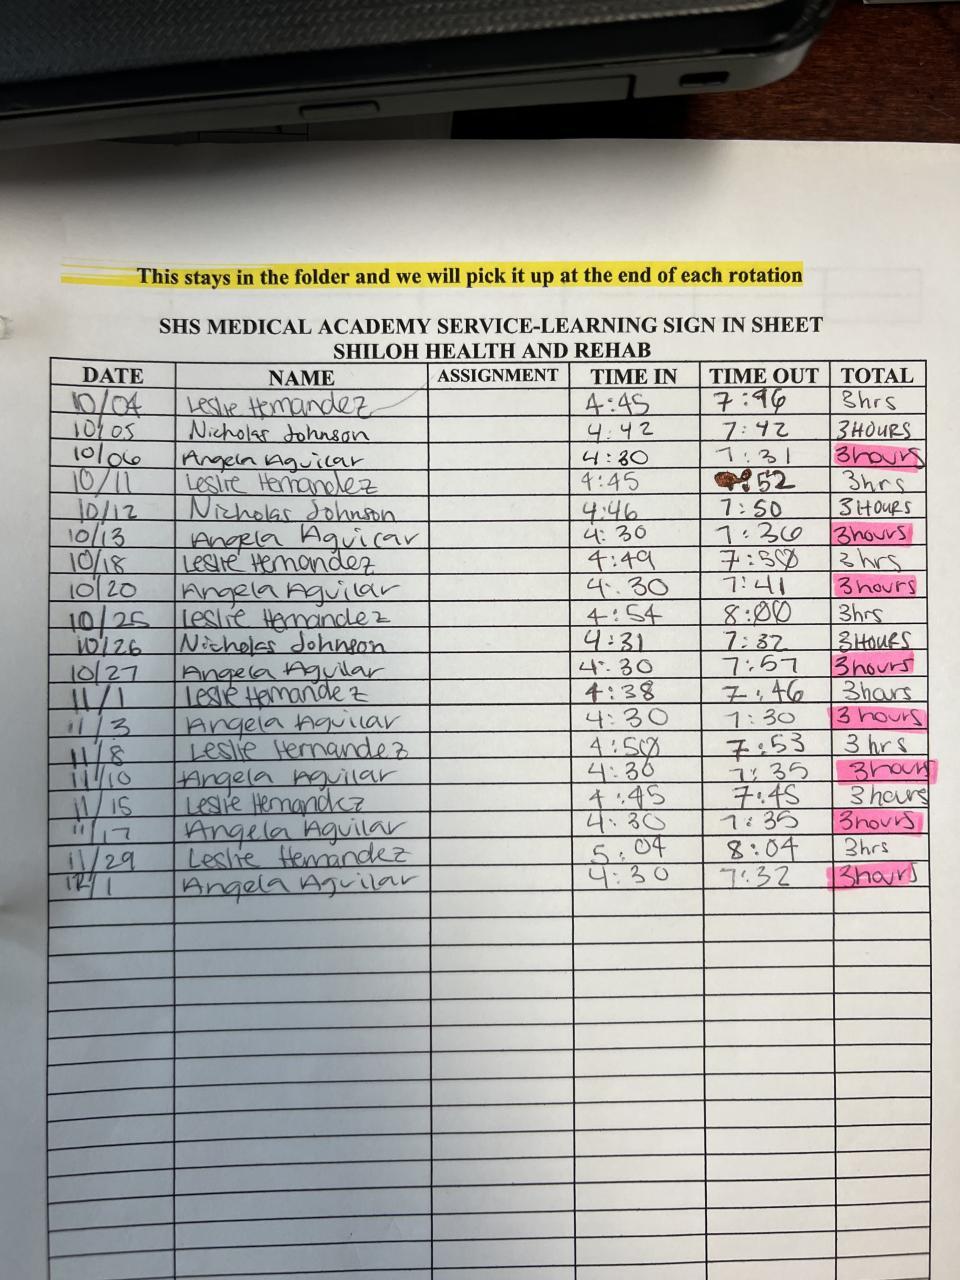 This stays in the folder and we will pick it up at the end of each rotation
SHS MEDICAL ACADEMY SERVICE-LEARNING SIGN IN SHEET
SHILOH HEALTH AND REHAB
DATE NAME ASSIGNMENT TIME IN TIME OUT TOTAL
10/04 Leslie Hernandez 4:45 7:46 3hrs
10/05 Nicholas Johnson 4:42 7:42 3HOURS
10/06 Angela Aguilar 4:30 7:31 3hours
10/11 Leslie Hernandez 4:45 :52 3hrs
10/12 Nicholas Johnson 4:46 7:50 3HOURS
10/13 Angela Aguilar 4:30 7:36 3hours
10/18 Leslie Hernandez 4:49 7:50 3hrs
10/20 Angela Aguilar 4:30 7:41 3hours
10/25 Leslie Hernandez 4:54 8:00 3hrs
10/26 Nicholas Johnson 4:31 7:32 3HOURS
10/27 Angela Aguilar 4:30 7:57 3hours
11/1 Leslie Hernandez 4:38 7:46 3hours
11/3 Angela Aguilar 4:30 7:30 3hours
11/8 Leslie Hernandez 4:50 7:53 3hrs
11/10 Angela Aguilar 4:30 7:35 3hours
11/15 Leslie Hernandez 4:45 7:45 3hours
11/17 Angela Aguilar 4:30 7:35 3hours
11/29 Leslie Hernandez 5:04 8:04 3hrs
12/1 Angela Aguilar 4:30 7:32 3hours